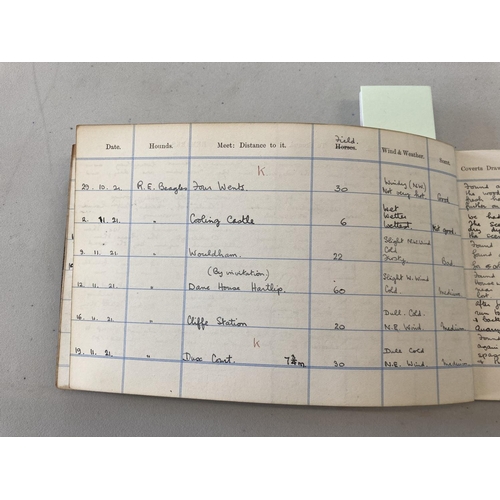 Date. Hounds. Meet: Distance to it. Field. Horses. Wind & Weather. Scent. Coverts Draw
K
29. 10. 21. R.E. Beagles Four Wents. 30 Windy (N.W) Not very hot Good
2. 11. 21. " Cooling Castle 6 Wet Wetter Wettest Not good.
9. 11. 21. " Wouldham. 22 Slight N.W. Wind Cold Frosty Bad
(By invitation)
12. 11. 21. " Dane House Hartlip 60 Slight W. Wind Cold Medium
16. 11. 21. " Cliffe Station 20 Dull. Cold. N.E. Wind. Medium
K
19. 11. 21. " Dux Court. 7¾m 30 Dull Cold N.E. Wind Medium
Found
the wood
We ha
Found
Found
After
Found
again